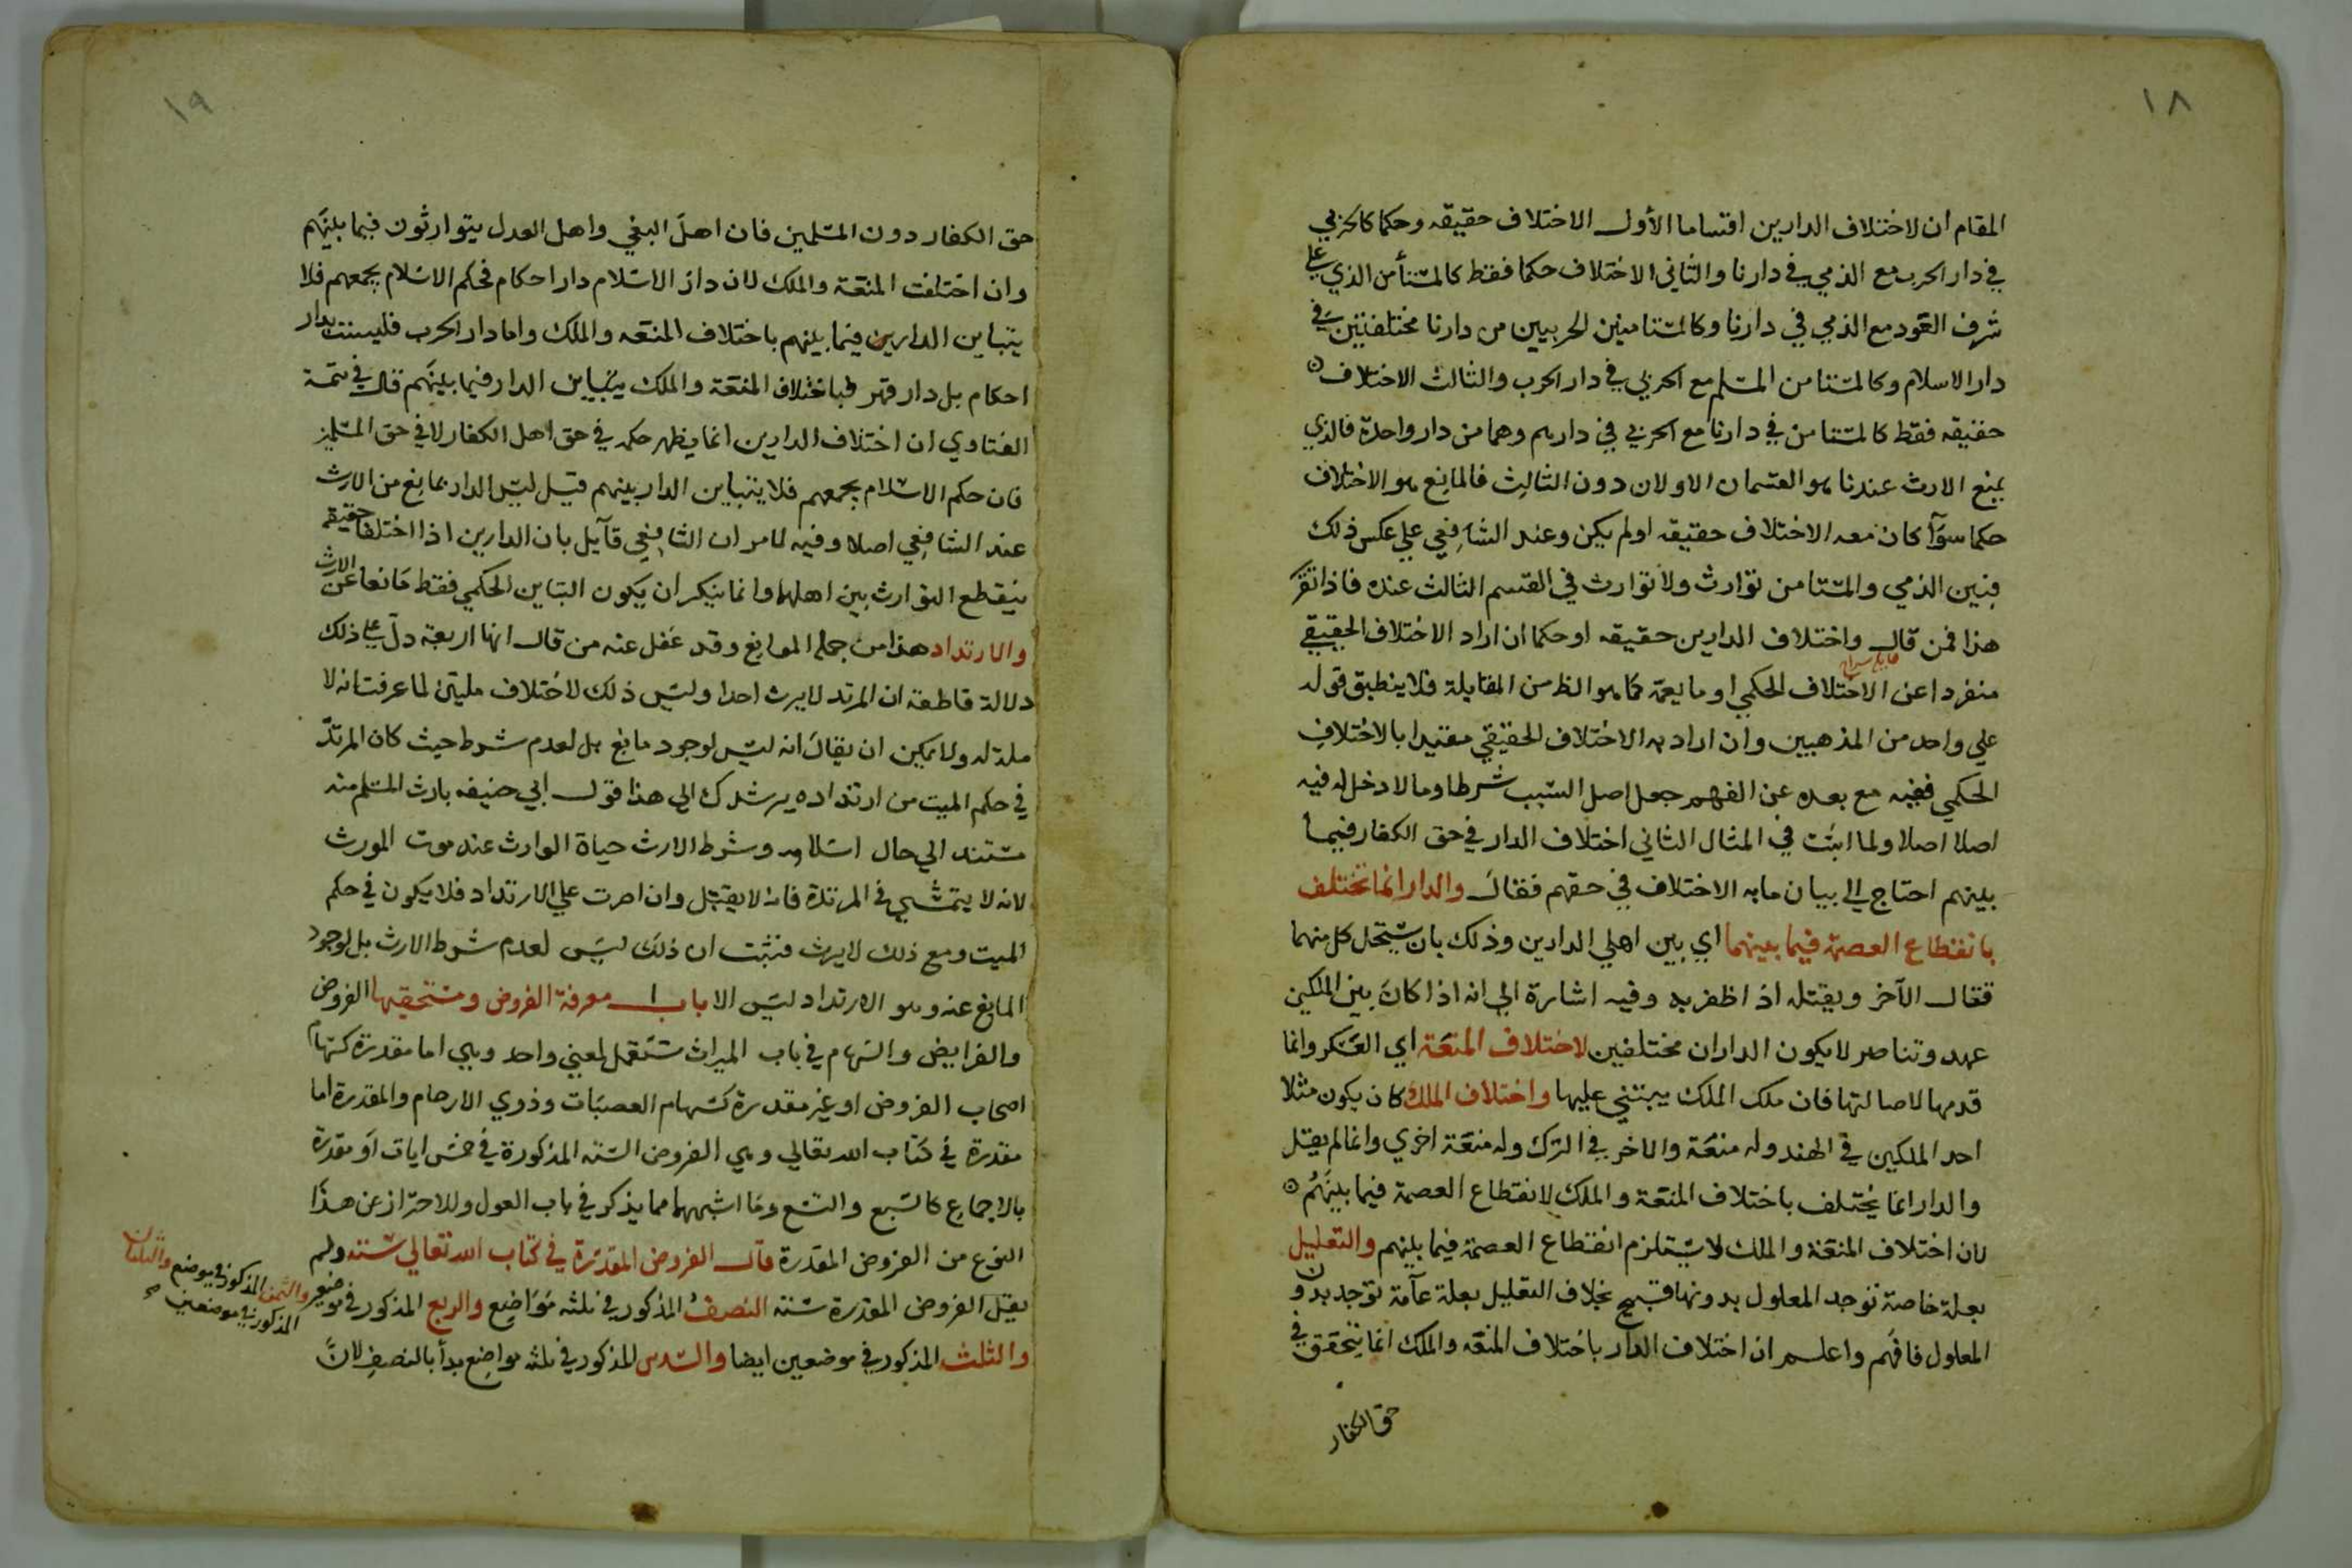 ١٨
المقام ان لاختلاف الدارين اقساما الأول الاختلاف حقيقه وحكما كالحربي
في دار الحرب مع الذمي في دارنا والثاني الاختلاف حكما فقط كالمستأمن الذي علي
شرف العود مع الذمي في دارنا وكالمستامنين الحربيين من دارنا مختلفتين في
دار الاسلام وكالمستامن المسلم مع الحربي في دار الحرب والثالث الاختلاف
حقيقه فقط كالمستامن في دارنا مع الحربي في دارهم وهما من دار واحدة فالذي
يمنع الارث عندنا هو القسمان الاولان دون الثالث فالمانع هو الاختلاف
حكما سوآ كان معه الاختلاف حقيقه اولم يكن وعند الشافعي علي عكس ذلك
فبين الذمي والمستامن توارث ولا توارث في القسم الثالث عنده فاذا تقرر
هذا فمن قال واختلاف الدارين حقيقه او حكما ان اراد الاختلاف الحقيقي
منفردا عن الاختلاف الحكمي او ما يعمه كما هو الظ من المقابلة فلا ينطبق قوله
علي واحد من المذهبين وان اراد به الاختلاف الحقيقي مقيدا بالاختلاف
الحكمي ففيه مع بعده عن الفهم جعل اصل السبب شرطا وما لا دخل له فيه
اصلا اصلا ولما اثبت في المثال الثاني اختلاف الدار في حق الكفار فيما
بينهم احتاج الي بيان ما به الاختلاف في حقهم فقال والدار انما تختلف
بانقطاع العصمة فيما بينهما اي بين اهلي الدارين وذلك بان يستحل كل منهما
قتال الآخر ويقتله اذا ظفر به وفيه اشارة الي انه اذا كان بين الملكين
عهد وتناصر لا يكون الداران مختلفين لاختلاف المنعة اي العسكر وانما
قدمها لاصالتها فان ملك الملك يبتني عليها واختلاف الملك كان يكون مثلا
احد الملكين في الهند وله منعة والاخر في الترك وله منعة اخري وانما لم يقل
والدار انما يختلف باختلاف المنعة والملك لانقطاع العصمة فيما بينهم
لان اختلاف المنعة والملك لا يستلزم انقطاع العصمة فيما بينهم والتعليل
بعلة خاصة توجد المعلول بدونها قبيح بخلاف التعليل بعلة عآمة توجد بدون
المعلول فافهم واعلم ان اختلاف الدار باختلاف المنعه والملك انما يتحقق في
حق الكفار
١٩
حق الكفار دون المسلمين فان اهل البغي واهل العدل يتوارثون فيما بينهم
وان اختلفت المنعة والملك لان دار الاسلام دار احكام فحكم الاسلام يجمعهم فلا
يتباين الدارين فيما بينهم باختلاف المنعه والملك واما دار الحرب فليست بدار
احكام بل دار قهر فباختلاف المنعة والملك يتباين الدار فيما بينهم قال في تتمة
الفتاوي ان اختلاف الدارين انما يظهر حكمه في حق اهل الكفار لا في حق المسلمين
فان حكم الاسلام يجمعهم فلا يتباين الدار بينهم قيل ليس الدار بمانع من الارث
عند الشافعي اصلا وفيه لما مر ان الشافعي قآيل بان الدارين اذا اختلفا حقيقه
ينقطع التوارث بين اهلهما وانما ينكر ان يكون التباين الحكمي فقط مانعا عن الارث
والارتداد هذا من جملة الموانع وقد غفل عنه من قال انها اربعة دل علي ذلك
دلالة قاطعة ان المرتد لا يرث احدا وليس ذلك لاختلاف ملتين لما عرفت انه لا
ملة له ولا يمكن ان يقال انه ليس لوجود مانع بل لعدم شرط حيث كان المرتد
في حكم الميت من ارتداده يرشدك الي هذا قول ابي حنيفه بارث المسلم منه
مستند الي حال اسلامه وشرط الارث حياة الوارث عند موت المورث
لانه لا يتمشي في المرتدة فانها لا يقتل وان اصرت علي الارتداد فلا يكون في حكم
الميت ومع ذلك لا يرث فثبت ان ذلك ليس لعدم شرط الارث بل لوجود
المانع عنه وهو الارتداد ليس الا باب معرفة الفروض ومستحقيها الفروض
والفرايض والسهام في باب الميراث تستعمل لمعني واحد وهي اما مقدرة كسهام
اصحاب الفروض او غير مقدرة كسهام العصبات وذوي الارحام والمقدرة اما
مقدرة في كتاب الله تعالي وهي الفروض الستة المذكورة في خمس ايات او مقدرة
بالاجماع كالسبع والتسع وما اشبههما مما يذكر في باب العول وللاحتراز عن هذا
النوع من الفروض المقدرة قال الفروض المقدرة في كتاب الله تعالي ستة ولم
يقل الفروض المقدرة ستة النصف المذكور في ثلثه مواضع والربع المذكور في موضعين والثمن المذكور في موضع والثلثان
المذكور في موضعين
والثلث المذكور في موضعين ايضا والسدس المذكور في ثلثه مواضع بدأ بالنصف لان